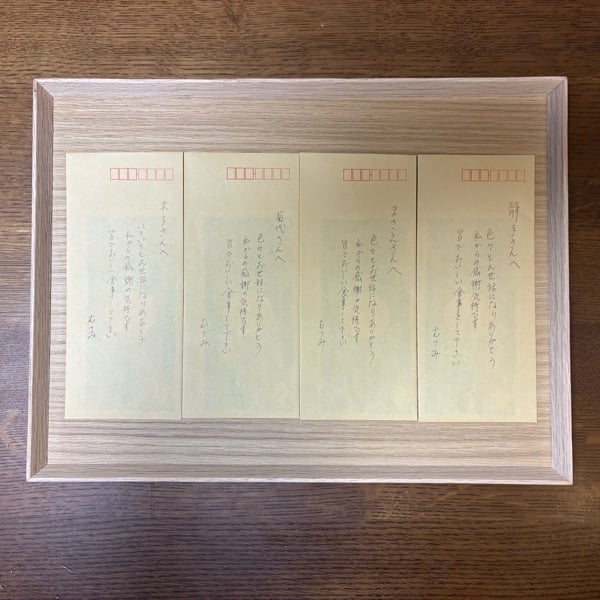 静子さんへ
色々とお世話になりありがとう
私からの感謝の気持です
皆でおいしい食事をして下さい
むつみ
まさこさんへ
色々とお世話になりありがとう
私からの感謝の気持です
皆でおいしい食事して下さい
むつみ
菊代さんへ
色々とお世話になりありがとう
私からの感謝の気持です
皆でおいしい食事して下さい
むつみ
子さんへ
いろいろとお世話になりありがとう
私からの感謝の気持です
皆でおいしい食事して下さい
むつみ